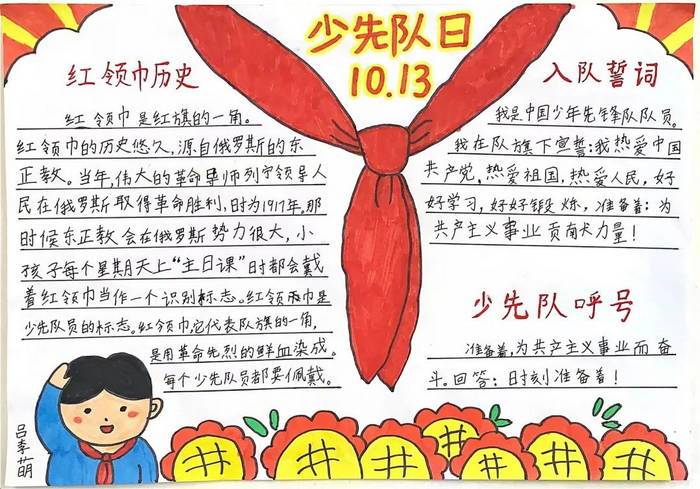 少先队日
10.13
红领巾历史
红领巾是红旗的一角。
红领巾的历史悠久,源自俄罗斯的东
正教。当年,伟大的革命导师列宁领导人
民在俄罗斯取得革命胜利,时为1917年,那
时候东正教会在俄罗斯势力很大,小
孩子每个星期天上“主日课”时都会戴
着红领巾当作一个识别标志。红领巾是
少先队员的标志。红领巾它代表队旗的一角,
是用革命先烈的鲜血染成。
每个少先队员都要佩戴。
入队誓词
我是中国少年先锋队队员。
我在队旗下宣誓:我热爱中国
共产党,热爱祖国,热爱人民,好
好学习,好好锻炼,准备着:为
共产主义事业贡献力量!
少先队呼号
准备着,为共产主义事业而奋
斗。回答:时刻准备着!
吕李萌